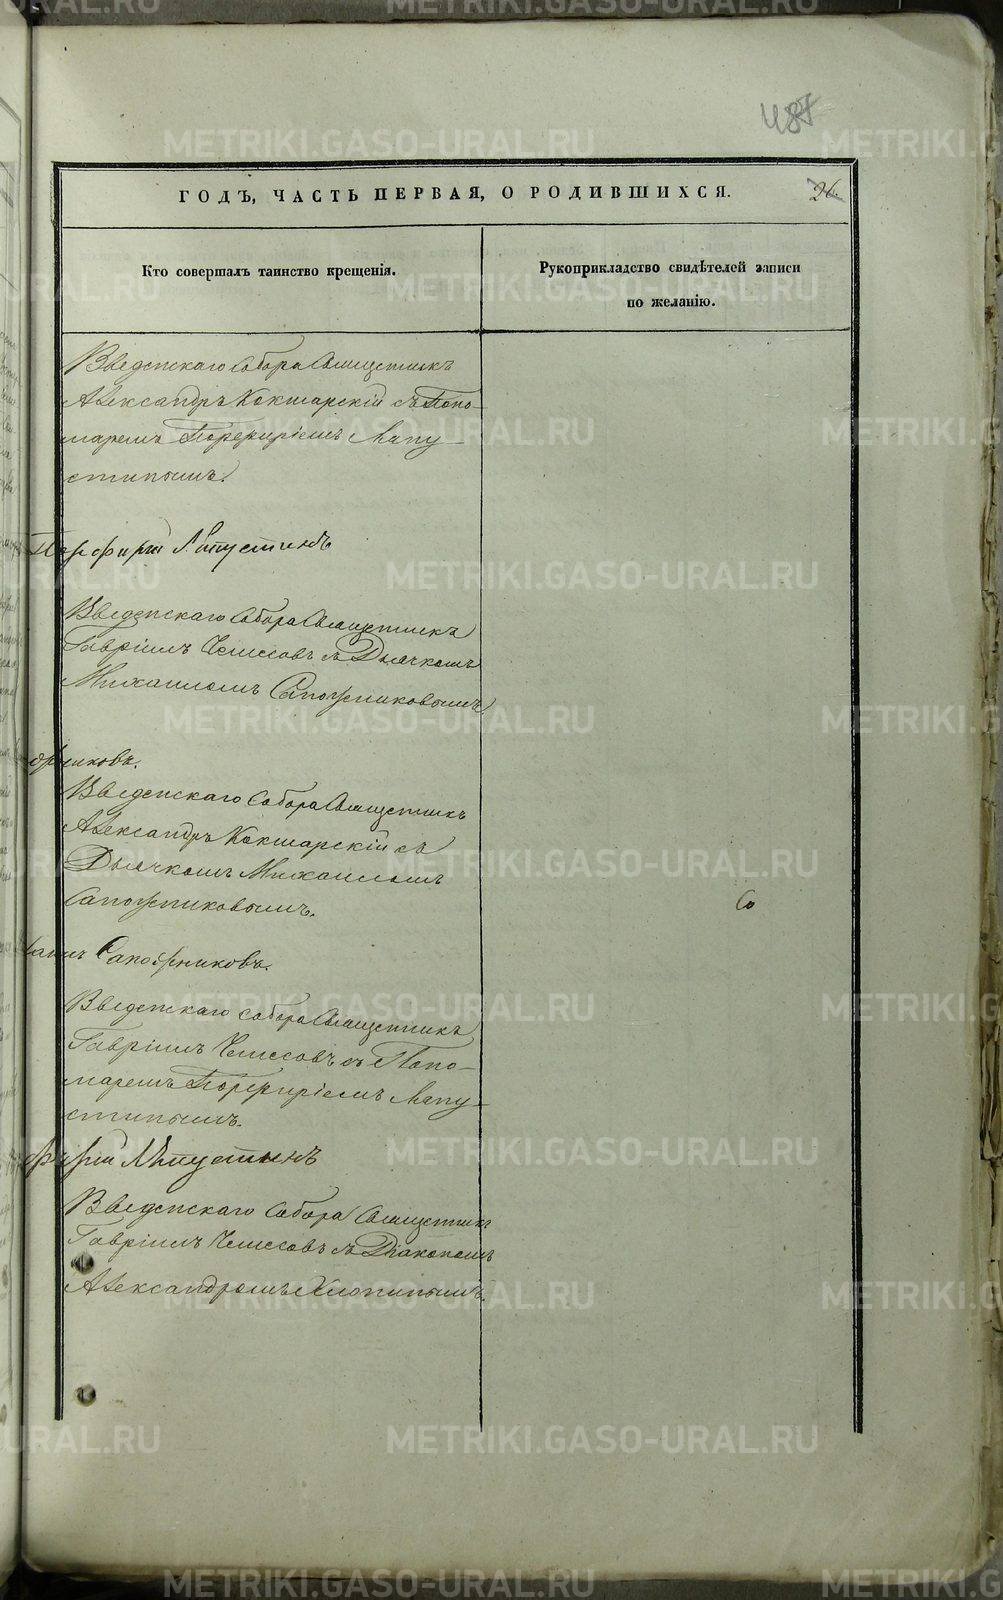 487
ГОДЪ, ЧАСТЬ ПЕРВАЯ, О РОДИВШИХСЯ.
26.
Кто совершалъ таинство крещенія.
Рукоприкладство свидѣтелей записи
по желанію.
Введенскаго Собора Священникъ
Александръ Кокшарскій съ Поно-
маремъ Порфиріемъ Лапу-
стинымъ.
Порфирій Лапустинъ
Введенскаго Собора Священникъ
Гавріилъ Чемесовъ съ Дьячкомъ
Михаиломъ Сапожниковымъ.
ожниковъ.
Введенскаго Собора Священникъ
Александръ Кокшарскій съ
Дьячкомъ Михаиломъ
Сапожниковымъ.
Со
Сапожниковъ.
Введенскаго Собора Священникъ
Гавріилъ Чемесовъ съ Поно-
маремъ Порфиріемъ Лапу-
стинымъ.
фирій Лапустинъ
Введенскаго Собора Священникъ
Гавріилъ Чемесовъ съ Діакономъ
Александромъ Хлопинымъ.
METRIKI.GASO-URAL.RU